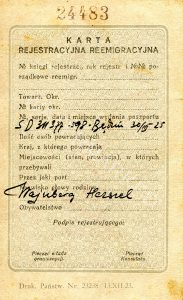 24483
KARTA
REJESTRACYJNA REEMIGRACYJNA
№ księgi rejestrac., rok rejestr. i № № po-
rządkowe reemigr.
Towarz. Okr.
№ karty okr.
№, serja, data i miejsce wydania paszportu
Ilość osób powracających
Kraj, z którego powraca
Miejscowość (sien, prowincja), w których
przebywali
Przez jaki port
Nazwisko głowy rodziny
Wajnberg Herszel
Obywatelstwo
Podpis rejestrującego:
Pieczęć etapu
granicznego.
Pieczęć
Konsulatu
Druk. Państw. Nr. 23238 13.XII.23.